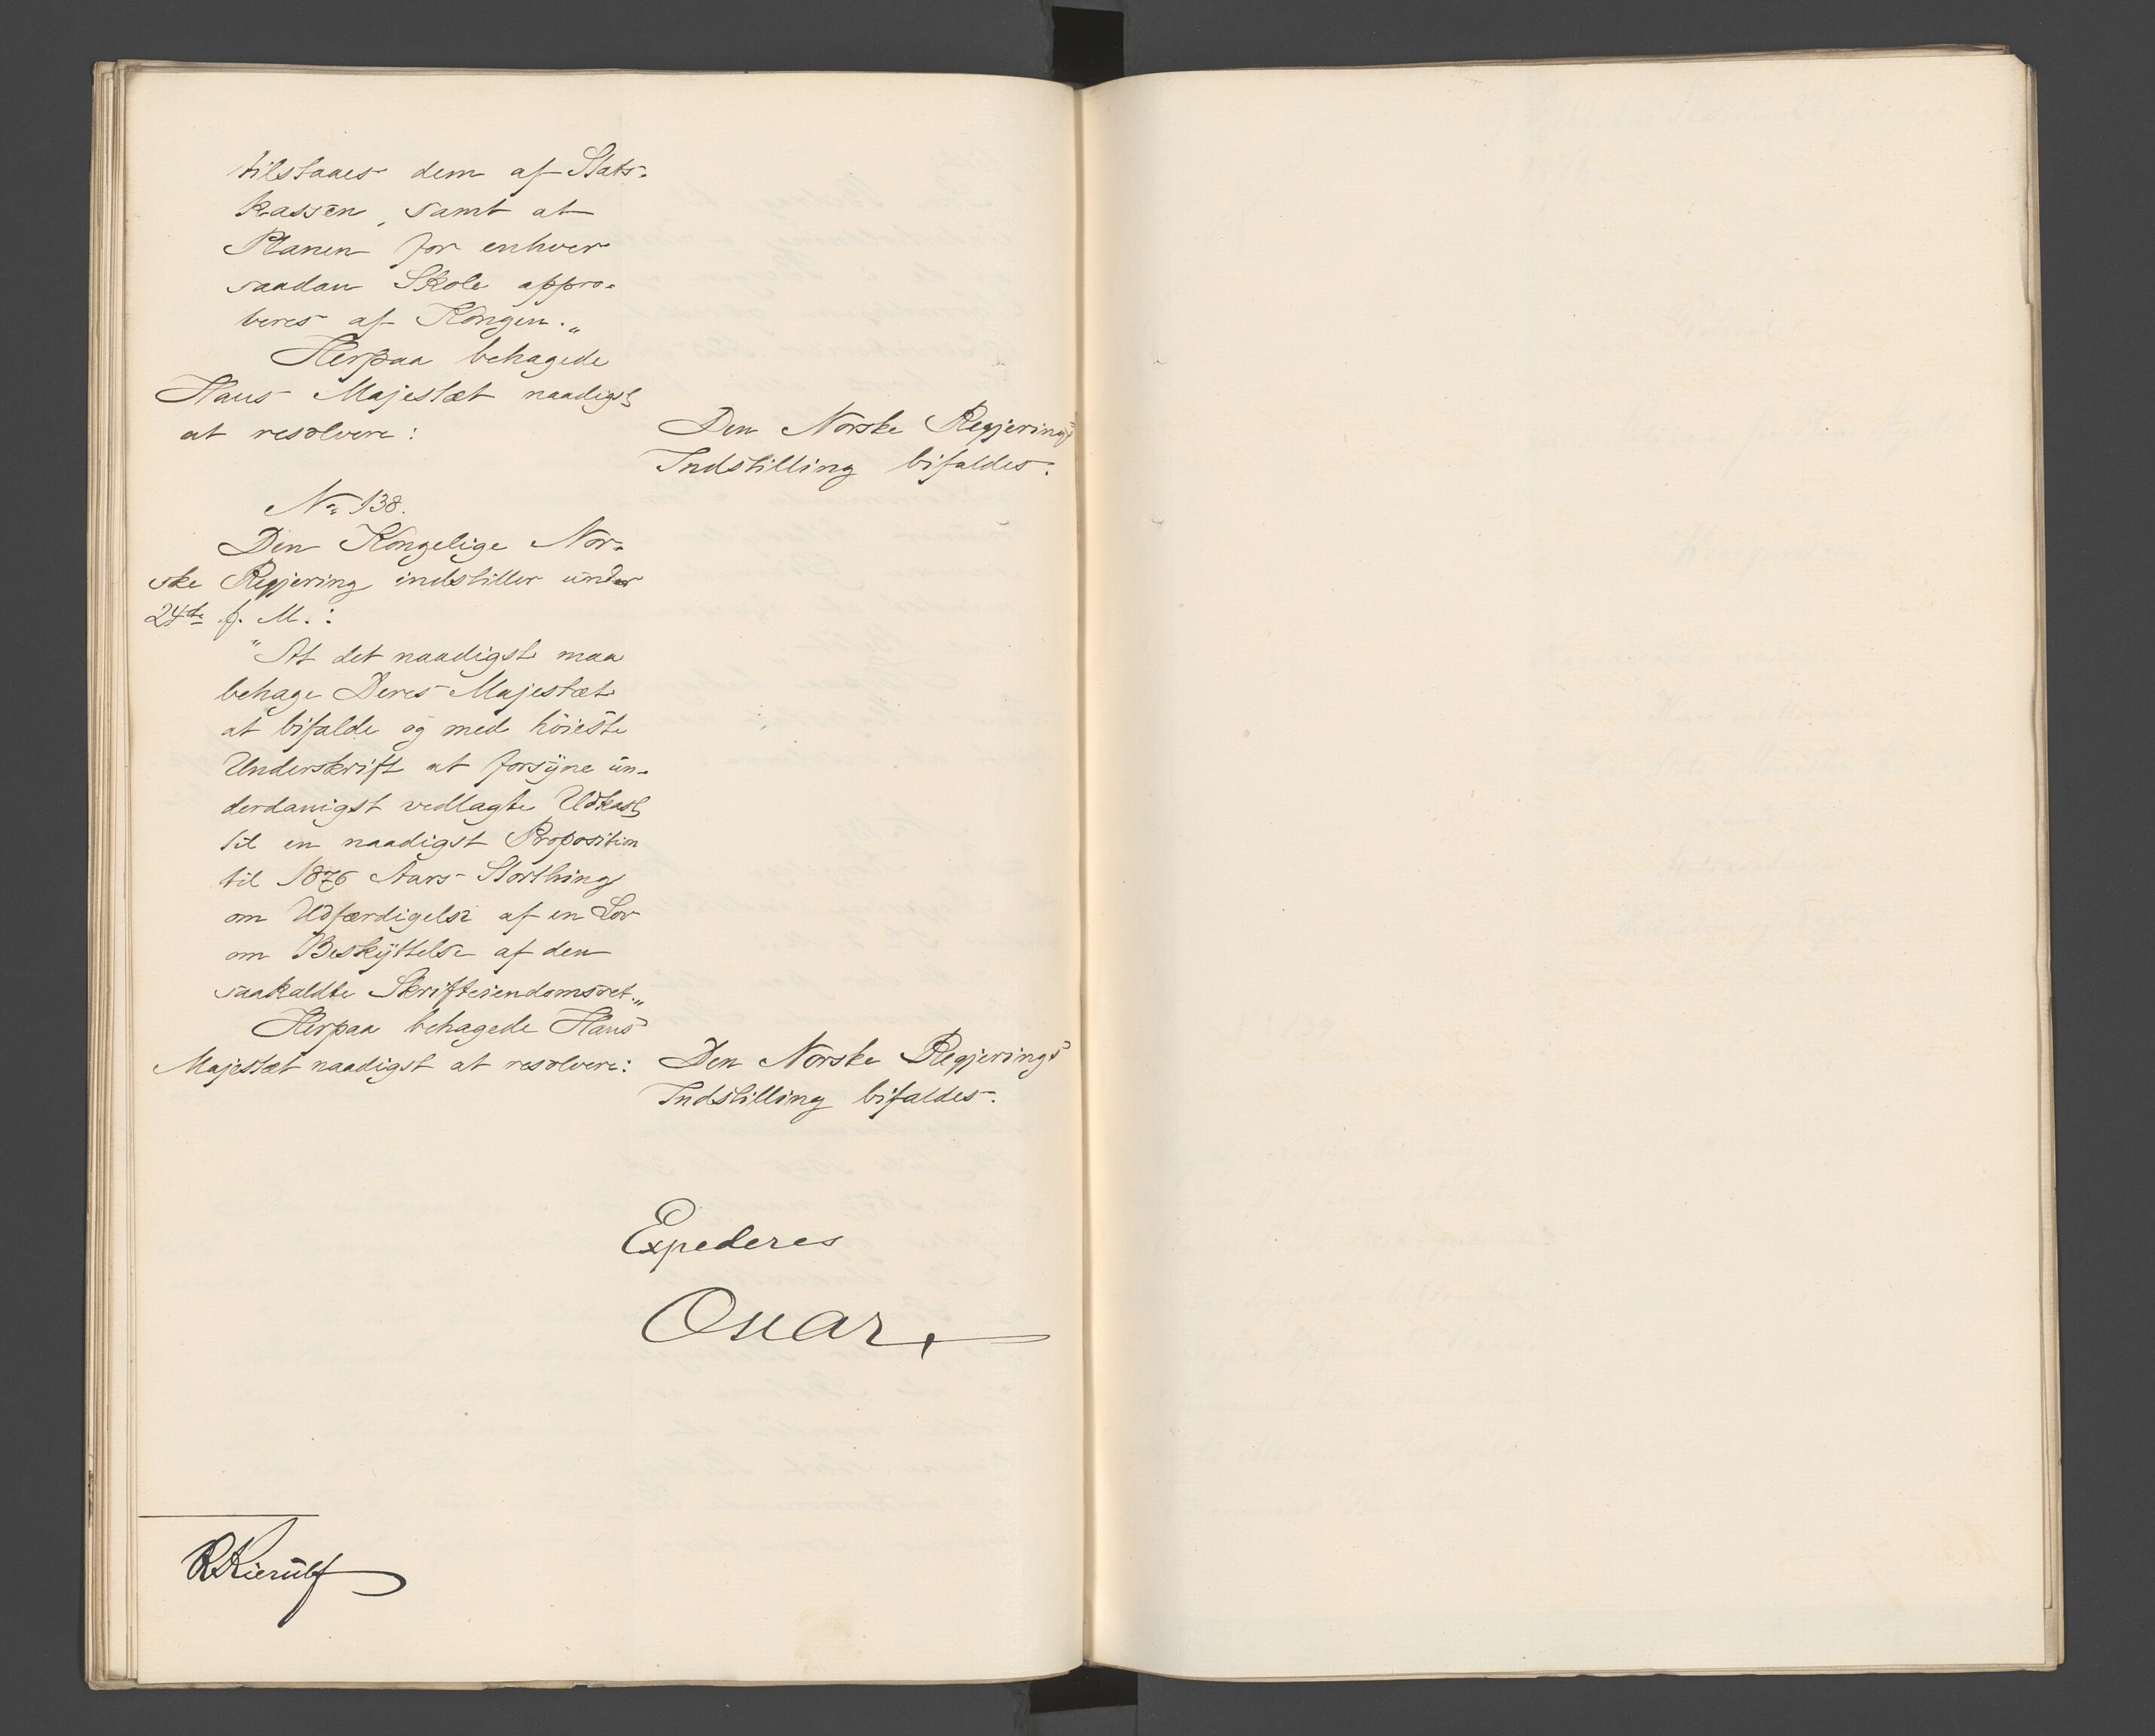 tilstaaes dem af Stats-
kassen, samt at
Planen for enhver
saadan Skole appro-
beres af Kongen."
Herpaa behagede
Hans Majestæt naadigst
at resolvere:
Den Norske Regjerings
Indstilling bifaldes.
No 138.
Den Kongelige Nor-
ske Regjering indstiller under
24de f. M.:
"At det naadigst maa
behage Deres Majestæt
at bifalde og med höieste
Underskrift at forsyne un-
derdanigst vedlagte Udkast
til en naadigst Proposition
til 1876 Aars Storthing
om Udfærdigelse af en Lov
om Beskyttelse af den
saakaldte Skrifteiendomsret."
Herpaa behagede Hans
Majestæt naadigst at resolvere:
Den Norske Regjerings
Indstilling bifaldes.
Expederes
Oscar
RKierulf